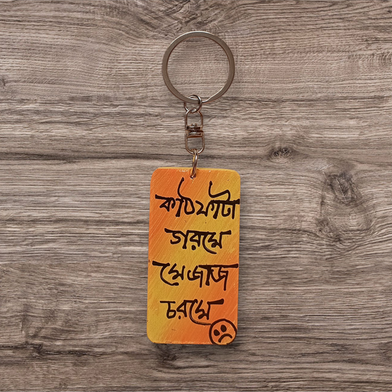 কাঠফাটা
গরমে
মেজাজ
চরমে